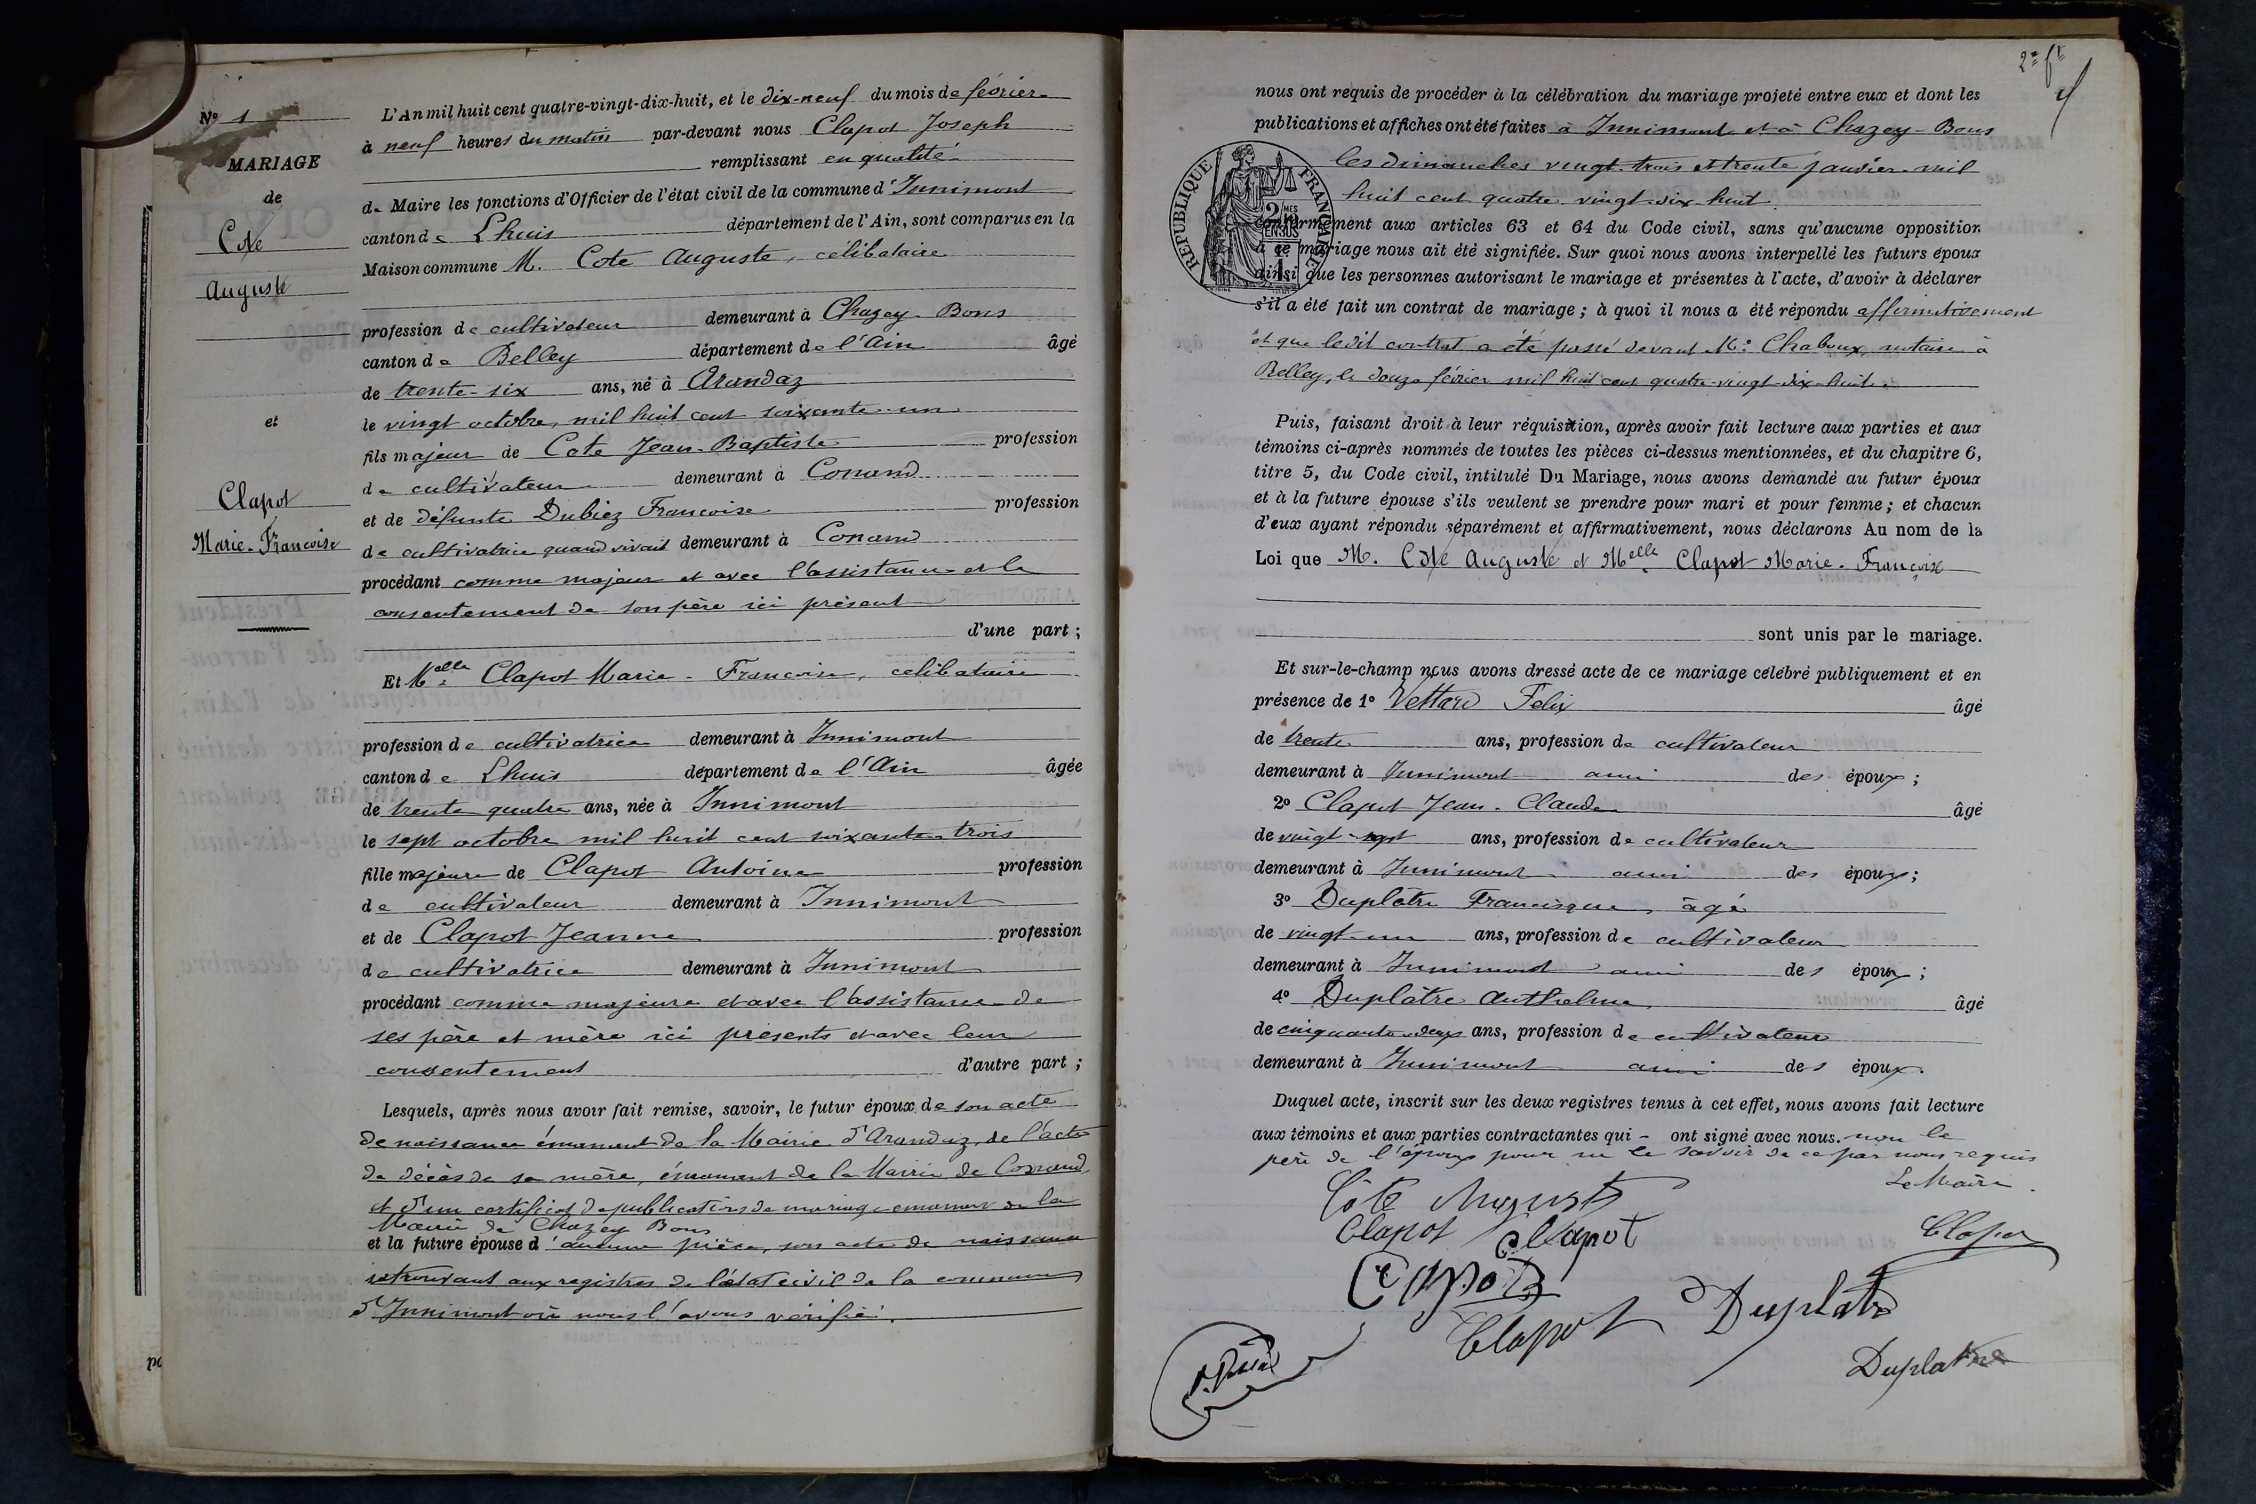 Nº 1
MARIAGE
de
Cote
Auguste
et
Clapot
Marie-Françoise
L'An mil huit cent quatre-vingt-dix-huit, et le dix-neuf du mois de février
à neuf heures du matin par-devant nous Clapot Joseph
remplissant en qualité
de Maire les fonctions d'Officier de l'état civil de la commune d'Innimont
canton de Lhuis département de l'Ain, sont comparus en la
Maison commune M. Cote Auguste, célibataire
profession de cultivateur demeurant à Chazey-Bons
canton de Belley département de l'Ain âgé
de trente-six ans, né à Arandaz
le vingt octobre, mil huit cent soixante-un
fils majeur de Cote Jean-Baptiste profession
de cultivateur demeurant à Conand
et de défunte Dubiez Francoise profession
de cultivatrice quand vivait demeurant à Conand
procédant comme majeur et avec l'assistance et le
consentement de son père ici présent
d'une part ;
Et Melle Clapot Marie-Francoise, célibataire
profession de cultivatrice demeurant à Innimont
canton de Lhuis département de l'Ain âgée
de trente quatre ans, née à Innimont
le sept octobre mil huit cent soixante-trois
fille majeure de Clapot Antoine profession
de cultivateur demeurant à Innimont
et de Clapot Jeanne profession
de cultivatrice demeurant à Innimont
procédant comme majeure et avec l'assistance de
ses père et mère ici présents et avec leur
consentement d'autre part ;
Lesquels, après nous avoir fait remise, savoir, le futur époux de son acte
de naissance émanant de la Mairie d'Arandaz, de l'acte
de décès de sa mère, émanant de la Mairie de Conand,
et d'un certificat de publications de mariage émanant de la
Mairie de Chazey Bons
et la future épouse d'aucune pièce, son acte de naissance
se trouvant aux registres de l'état civil de la commune
d'Innimont où nous l'avons vérifié.
2e ft
nous ont requis de procéder à la célébration du mariage projeté entre eux et dont les
publications et affiches ont été faites à Innimont et à Chazey-Bons
les dimanches vingt-trois et trente janvier mil
huit cent quatre-vingt-dix-huit
RÉPUBLIQUE FRANÇAISE
conformément aux articles 63 et 64 du Code civil, sans qu'aucune opposition
à ce mariage nous ait été signifiée. Sur quoi nous avons interpellé les futurs époux
ainsi que les personnes autorisant le mariage et présentes à l'acte, d'avoir à déclarer
s'il a été fait un contrat de mariage ; à quoi il nous a été répondu affirmativement
et que ledit contrat a été passé devant Me Chaboux, notaire à
Belley, le douze février mil huit cent quatre-vingt-dix-huit.
Puis, faisant droit à leur réquisition, après avoir fait lecture aux parties et aux
témoins ci-après nommés de toutes les pièces ci-dessus mentionnées, et du chapitre 6,
titre 5, du Code civil, intitulé Du Mariage, nous avons demandé au futur époux
et à la future épouse s'ils veulent se prendre pour mari et pour femme ; et chacun
d'eux ayant répondu séparément et affirmativement, nous déclarons Au nom de la
Loi que M. Cote Auguste et Melle Clapot Marie-Françoise
sont unis par le mariage.
Et sur-le-champ nous avons dressé acte de ce mariage célébré publiquement et en
présence de 1º Vettard Felix âgé
de trente ans, profession de cultivateur
demeurant à Innimont ami des époux ;
2º Clapot Jean-Claude âgé
de vingt-sept ans, profession de cultivateur
demeurant à Innimont ami des époux ;
3º Duplâtre Francisque, âgé
de vingt-un ans, profession de cultivateur
demeurant à Innimont ami des époux ;
4º Duplâtre Anthelme âgé
de cinquante-deux ans, profession de cultivateur
demeurant à Innimont ami des époux.
Duquel acte, inscrit sur les deux registres tenus à cet effet, nous avons fait lecture
aux témoins et aux parties contractantes qui - ont signé avec nous. non le
père de l'époux pour ne le savoir de ce par nous requis
Le Maire
Côte Auguste
Clapot Clapot
Clapot
Clapot
Clapot Duplatre
Duplatre